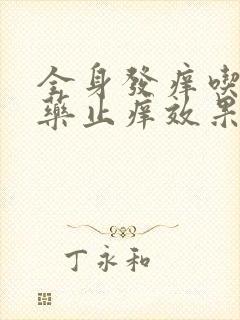 全身發痒喫
藥止痒效果
丁永和